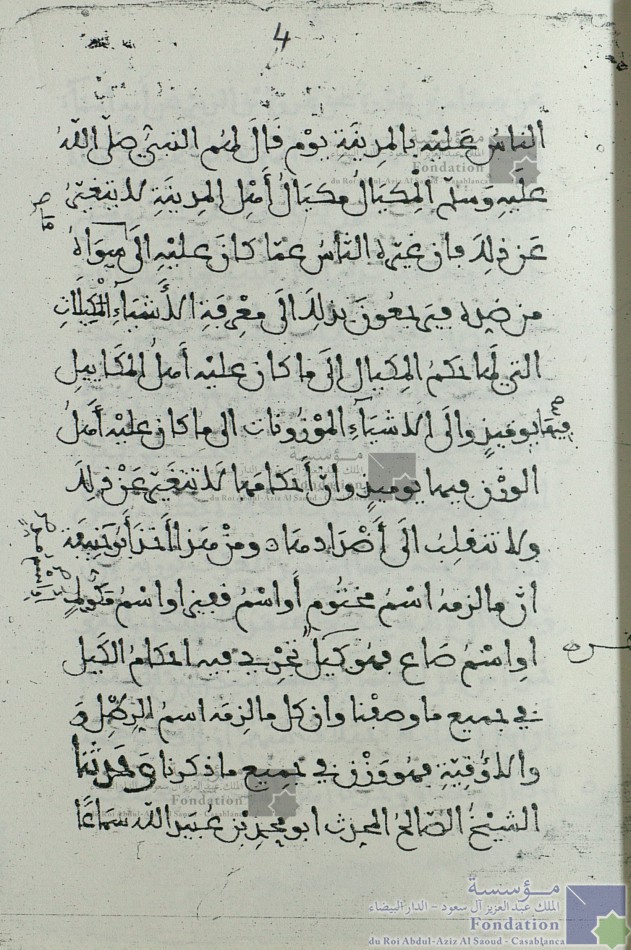 4
الناسُ عَليْه بالمدِينَةِ يوْم قَالَ لهُم النبيّ صلّى اللهُ
علَيهِ وَسلّم الْمِكيَالُ مِكيَالُ أهْلِ المدِينَةِ لا يتغيّرُ
عَن ذلِكَ وان غيّره الناسُ عمّا كانَ عليْهِ الى سِوَاهُ
من ضدِه فيرجعونَ بذلِكَ الى معْرِفَةِ الأشيَآءِ المَكِيلاتِ
التي لها حكمُ المِكيالِ الى ما كان عليْه أهلُ المكَاييلِ
فيها يوميذٍ والى الاشيَآءِ الموْزُونات الى ما كان عليْه أهلُ
الوزْن فيها يوميذٍ وانّ أحكامها لا تتغيّر عَنْ ذلِكَ
ولا تنقلِبُ الى أضْدادها ومنْ هذا أخذ أبو حَنيفة
انّ ما لزمهُ اسْمُ مختُومٍ أو اسْمُ قفيزٍ او اسْمُ مَكّوكٍ
او اسْمُ صَاعٍ فهُو كيلٌ تجْرِي فيه احكَامُ الكَيْل
في جميع ما وصفْنا وان كل ما لزِمَه اسمُ الرِّطْلِ
والاوُقيّةِ فهُو وَزْن في جميع ما ذكرنا وَحدثنا
الشيْخُ الصّالحُ المحدث ابو محمد بن عبيد اللهِ سمَاعًا
مؤسسة
الملك عبد العزيز آل سعود - الدار البيضاء
Fondation
du Roi Abdul-Aziz Al Saoud - Casablanca